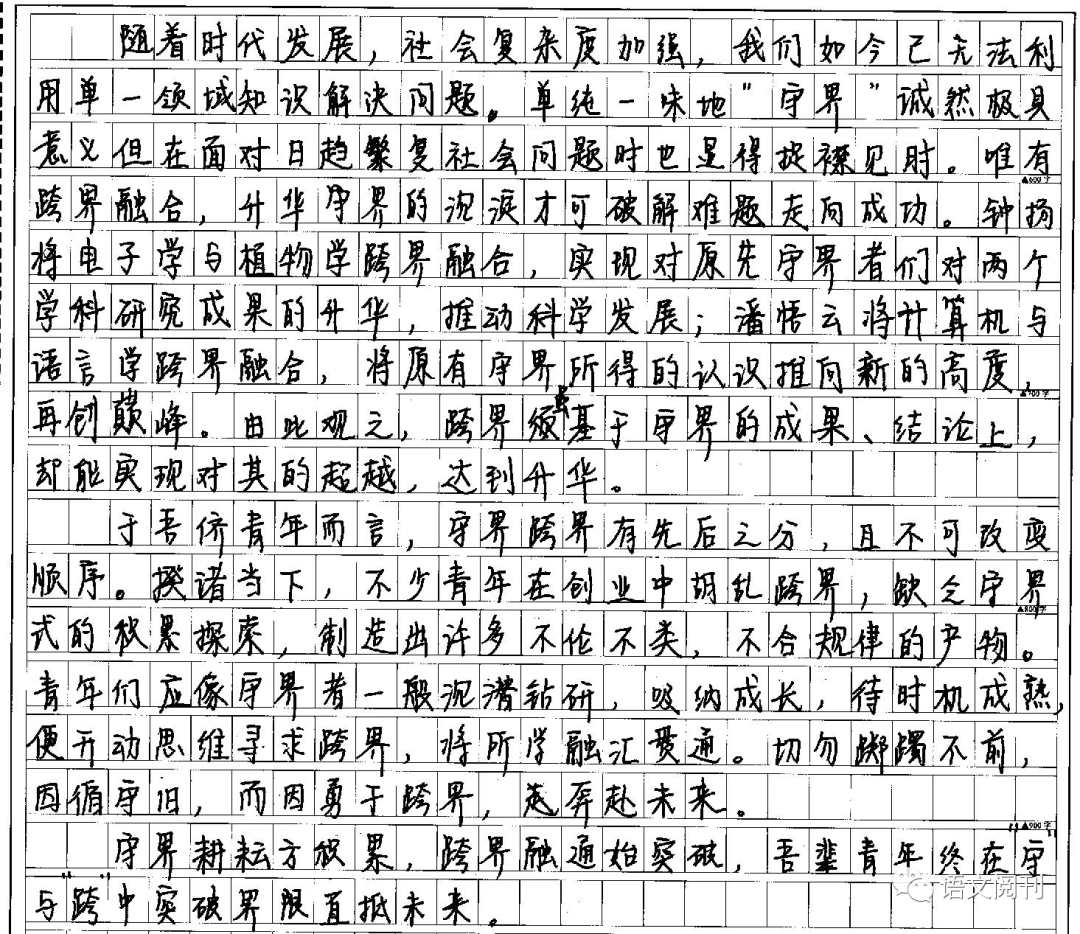 随着时代发展，社会复杂度加强，我们如今已无法利
用单一领域知识解决问题。单纯一味地"守界"诚然极具
意义但在面对日趋繁复社会问题时也显得捉襟见肘。唯有
▲600字
跨界融合，升华守界的沉淀才可破解难题走向成功。钟扬
将电子学与植物学跨界融合，实现对原先守界者们对两个
学科研究成果的升华，推动科学发展；潘悟云将计算机与
语言学跨界融合，将原有守界所得的认识推向新的高度，
▲700字
再创巅峰。由此观之，跨界须基于守界的成果、结论上，
却能实现对其的超越，达到升华。
于吾侪青年而言，守界跨界有先后之分，且不可改变
顺序。揆诸当下，不少青年在创业中胡乱跨界，缺乏守界
▲800字
式的积累探索，制造出许多不伦不类，不合规律的产物。
青年们应像守界者一般沉潜钻研，吸纳成长，待时机成熟，
便开动思维寻求跨界，将所学融汇贯通。切勿踯躅不前，
因循守旧，而因勇于跨界，奔赴未来。
▲900字
守界耕耘方积累，跨界融通始突破，吾辈青年终在"守"
与"跨"中突破界限直抵未来。
语文阅刊